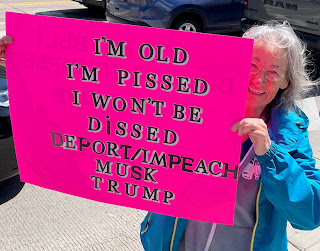 I'M OLD
I'M PISSED
I WON'T BE
DiSSED
DEPORT/IMPEACH
MUSK
TRUMP